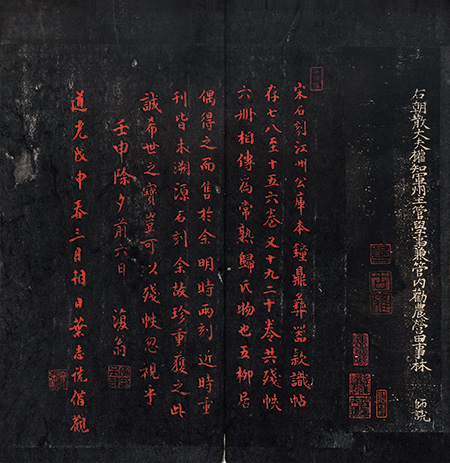 右朝散大夫權知軍州主管學事兼管內勸農營田事林 師說
宋石刻江州公庫本鐘鼎彝器款識帖
存七八至十五六卷又十九二十卷共殘帙
六冊相傳為常熟歸氏物也五柳居
偶得之而售於余明時兩刻近時重
刊皆未溯源石刻余故珍重獲之此
誠希世之寶豈可以殘帙忽視乎
壬申除夕前六日 復翁
道光戊申春三月朔日葉志詵借觀